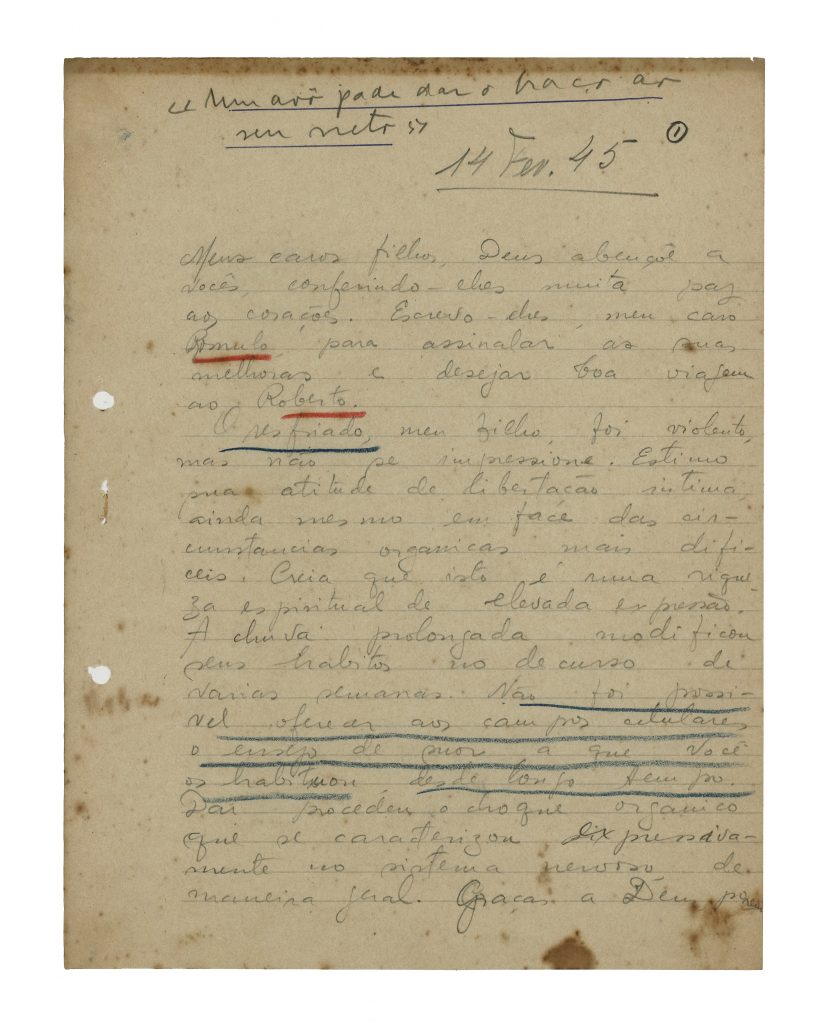 "Um avô pode dar o braço ao
seu neto"
1
14 Fev. 45
Meus caros filhos, Deus abençôe a
vocês, conferindo-lhes muita paz
aos corações. Escrevo-lhes, meu caro
Romulo, para assinalar as suas
melhoras e desejar boa viagem
ao Roberto.
O resfriado, meu filho, foi violento,
mas não se impressione. Estimo
sua atitude de libertação intima,
ainda mesmo em face das cir-
cunstancias organicas mais difi-
ceis. Creia que isto é uma rique-
za espiritual de elevada expressão.
A chuva prolongada modificou
seus habitos no decurso de
varias semanas. Não foi possi-
vel oferecer aos campos celulares
o ensejo de suor a que você
os habituou, desde longo tempo.
Daí procedeu o choque organico
que se caracterizou expressiva-
mente no sistema nervoso de
maneira geral. Graças a Deus, porem